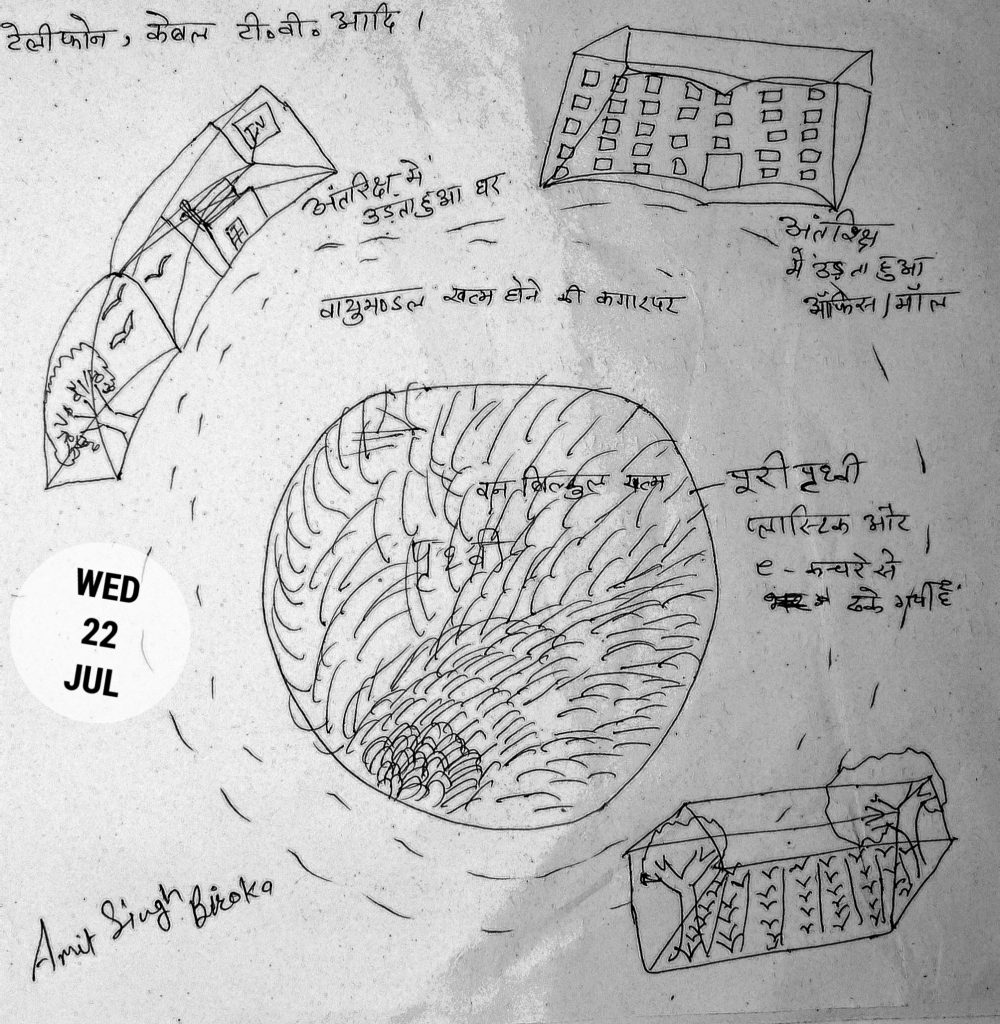 टेलीफोन, केबल टी॰वी॰ आदि ।
TV
अंतरिक्ष में
उड़ता हुआ घर
अंतरिक्ष
में उड़ता हुआ
ऑफिस/मॉल
वायुमण्डल खत्म होने की कगार पर
वन बिल्कुल खत्म
पृथ्वी
पूरी पृथ्वी
प्लास्टिक और
e-कचरे से
ढक गयी है
WED
22
JUL
Amit Singh
Biroka